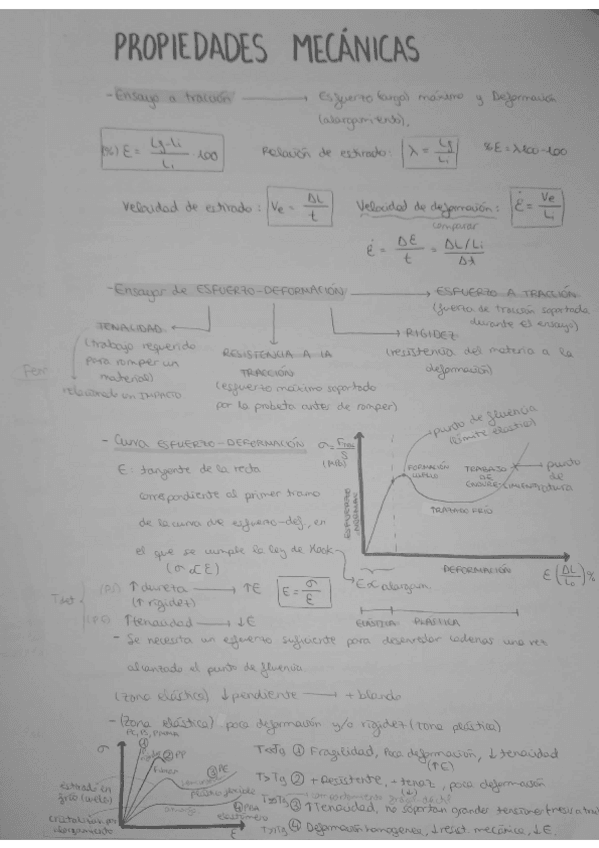 PROPIEDADES MECÁNICAS
- Ensayo a tracción → Esfuerzo (carga) máximo y Deformación
(alargamiento).
(%) Ɛ = Lf-Li / Li · 100
Relación de estirado: λ = Lf / Li
%Ɛ = λ100-100
Velocidad de estirado: Ve = ΔL / t
Velocidad de deformación: Ɛ̇ = Ve / Li
comparar
Ɛ̇ = ΔƐ / t = ΔL/Li / Δt
- Ensayos de ESFUERZO-DEFORMACIÓN → ESFUERZO A TRACCIÓN
(fuerza de tracción soportada
durante el ensayo)
TENACIDAD
(trabajo requerido
para romper un
material)
relacionado con IMPACTO
RESISTENCIA A LA
TRACCIÓN
(esfuerzo máximo soportado
por la probeta antes de romper)
RIGIDEZ
(resistencia del material a la
deformación)
- Curva ESFUERZO-DEFORMACIÓN
E: tangente de la recta
correspondiente al primer tramo
de la curva de esfuerzo-def., en
el que se cumple la ley de Hook
(σ ∝ Ɛ)
↑ dureza → ↑E
(↑ rigidez)
E = σ / Ɛ
↑ tenacidad → ↓E
punto de fluencia
(límite elástico)
FORMACIÓN
CUELLO
TRABAJO
DE
punto
de
TRABAJO FRÍO
ESFUERZO
DEFORMACIÓN
Ɛ (ΔL / Lo) %
ELÁSTICA
PLÁSTICA
- Se necesita un esfuerzo suficiente para desenredar cadenas una vez
alcanzado el punto de fluencia.
(zona elástica) ↓ pendiente → + blando
- (Zona elástica) poca deformación y/o rigidez (zona plástica)
σ
① 
② PP
③ PE
④
elastómero
estirado en
frío (cuello)
Ɛ
① Fragilidad, Poca deformación, ↓ tenacidad
(↑E)
② + Resistente, + tenaz, poca deformación
③ ↑Tenacidad, no soportan grandes tensiones
④ Deformación homogénea, ↓ resist. mecánica, ↓E.